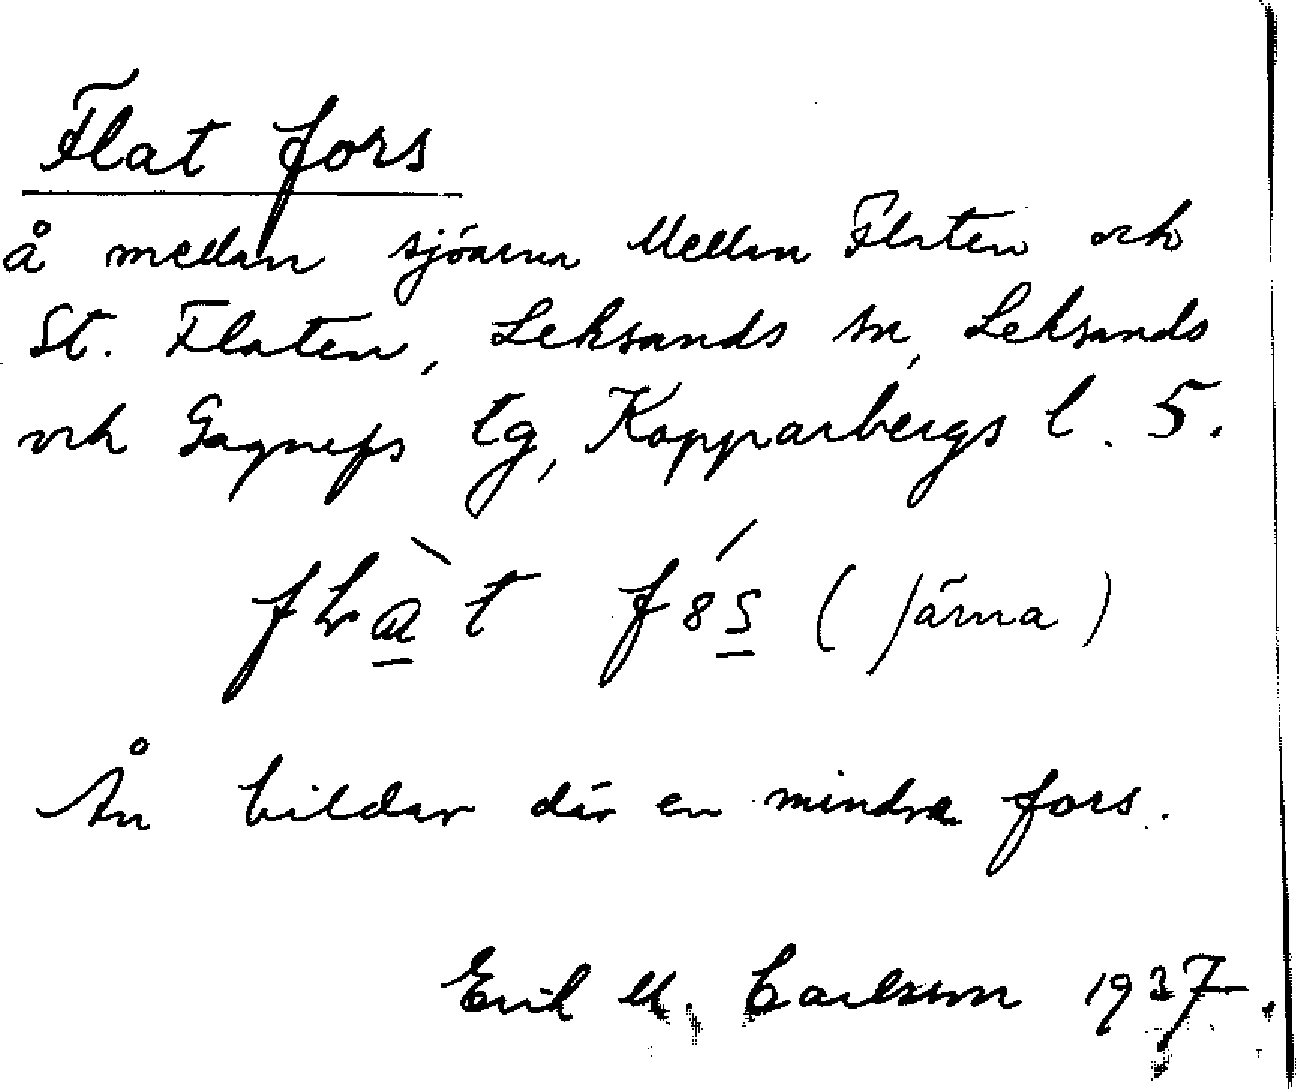 Flat fors
å medan sjöarna Mellan Flaten och
St. Flaten, Leksands sn, Leksands
och Gagnefs tg, Kopparbergs l. 5.
t (Järna)
Ån bildar där en mindre fors.
Erik M. Carlsson 1937.